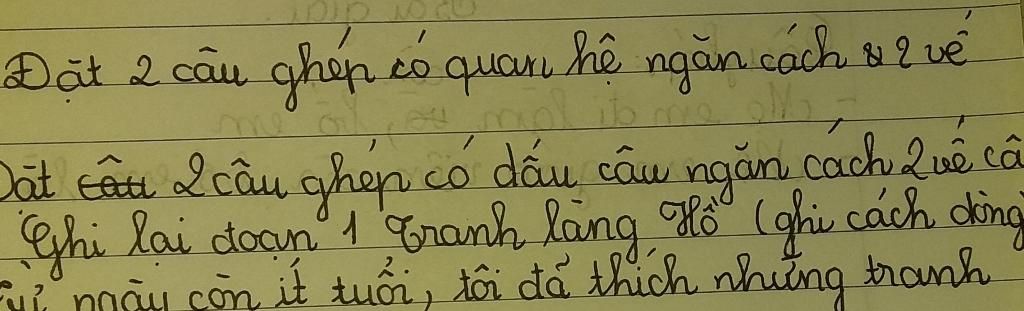 Đặt 2 câu ghép có quan hệ ngăn cách 2 vế
Đặt 2 câu ghép có dấu câu ngăn cách 2 vế câ
Ghi lại đoạn 1 Tranh làng Hồ (ghi cách dòng
ngày còn ít tuổi, tôi đã thích những tranh